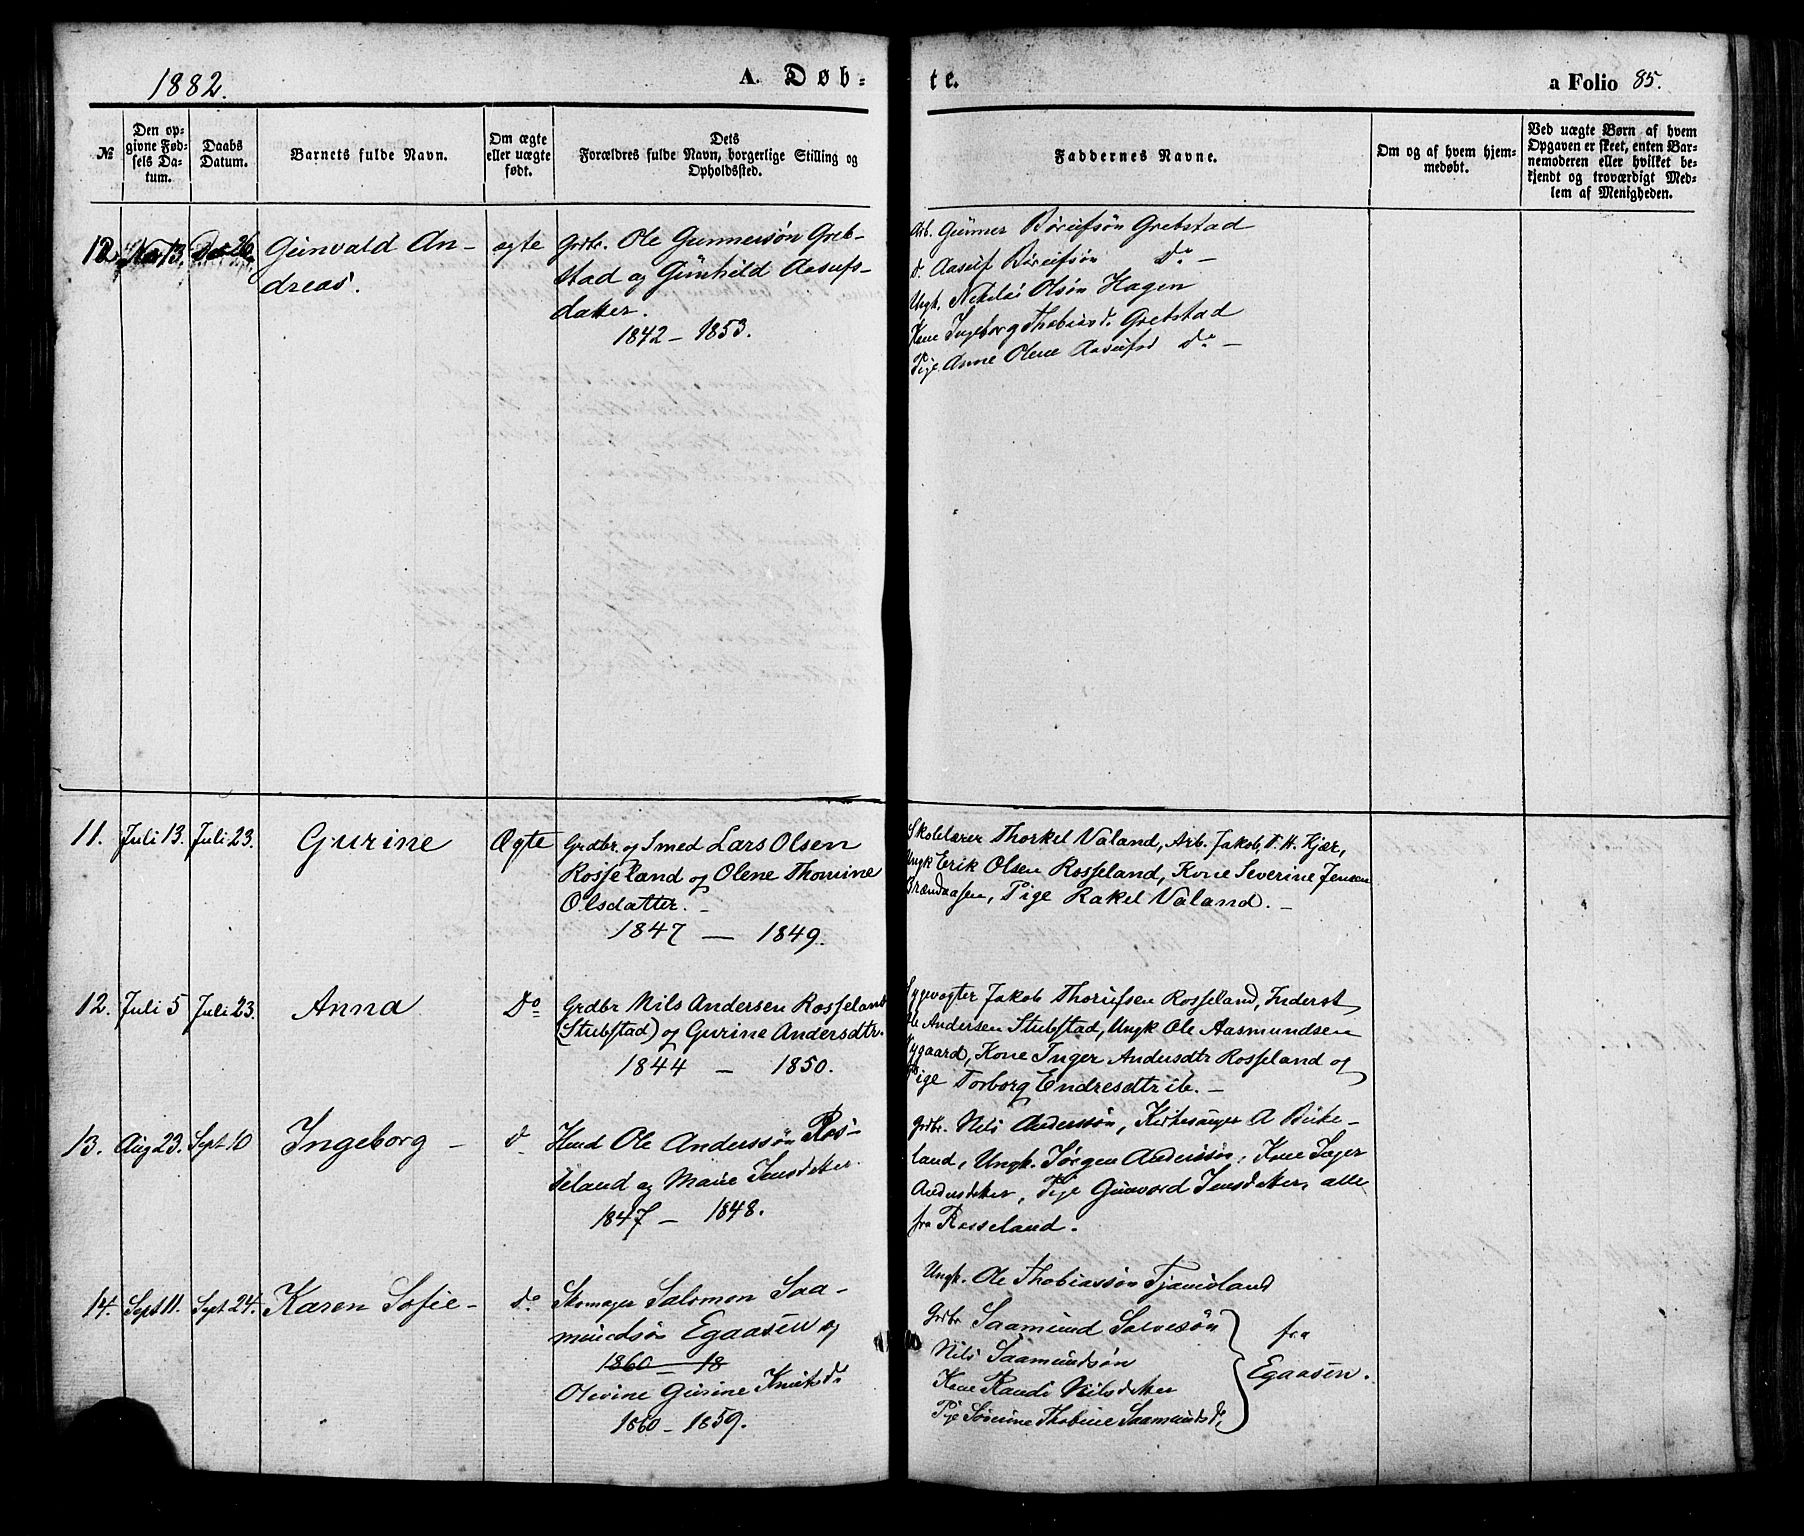 1882.
A. Døb-
te.
a Folio 85.
№
Den op-
givne Fød-
sels Da-
tum.
Daabs
Datum.
Barnets fulde Navn.
Om ægte
eller uægte
født.
Dets
Forældres fulde Navn, borgerlige Stilling og
Opholdssted.
Faddernes Navne.
Om og af hvem hjem-
medøbt.
Ved uægte Børn af hvem
Opgaven er skeet, enten Bar-
nemoderen eller hvilket be-
kjendt og troværdigt Med-
lem af Menigheden.
13. 26
Gunvald An-
dreas.
ægte
Grdbr. Ole Gunnersøn Greb-
stad og Gunhild Aasufs-
datter.
1842 – 1853.
Arb. Gunner Grebstad
d. Aasulf Do –
Ungk. Nikolai Olsøn Hagen
Kone Ingeborg Thobiasd. Grebstad
Pige Anne Olene Do –
11. Juli 13. Juli 23. Gurine Ægte
Grdbr. og Smed Lars Olsen
Rosseland og Olene Thomine
Olsdatter. –
1847 — 1849.
Skolelærer Thorkel Valand, Arb. Jakob T. H. Kjær,
Ungk Erik Olsen Rosseland, Kone Severine Jensen
Brændaasen, Pige Rakel Valand. –
12. Juli 5 Juli 23. Anna Do
Grdbr Nils Andersen Rosseland
(Stubstad) og Gurine Andersdtr.
1844 – 1850.
Jakob Thorufsen Rosseland, Inderst
Ole Andersen Stubstad, Ungk Ole Aasmundsen
Nygaard, Kone Inger Andersdtr Rosseland og
Pige Torborg Endresdtr ib. –
13. Aug 23. Sept. 10 Ingeborg – d.
Husd Ole Anderssøn Ros-
seland og Marie Jensdatter.
1847 – 1848.
Grdbr. Nils Anderssøn, Kirkesanger A Birke-
land, Ungk. Jørgen Anderssøn, Kone Inger
Andersdatter, Pige Gunvord Jensdatter, alle
fra Rosseland.
14. Sept 11. Sept 24. Karen Sofie – do
Skomager Salomon Saa-
mundsøn Egaasen og
1860 – 18
Olevine Gurine Knutsdr
1860 – 1859.
Ungk. Ole Thobiassøn Tjamsland
Grdbr Saamund Salvesøn
Nils Saamundsøn
Kone Randi Nilsdatter
Pige Thobine Saamundsdr.
fra
Egaasen.